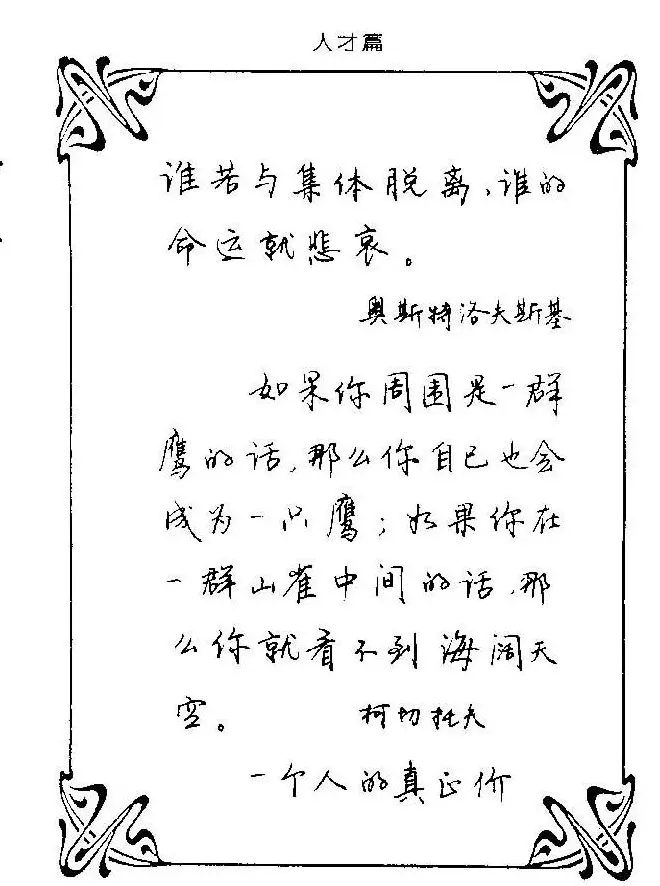 人才篇
谁若与集体脱离、谁的
命运就悲哀。
奥斯特洛夫斯基
如果你周围是一群
鹰的话,那么你自己也会
成为一只鹰;如果你在
一群山雀中间的话,那
么你就看不到海阔天
空。 柯切托夫
一个人的真正价